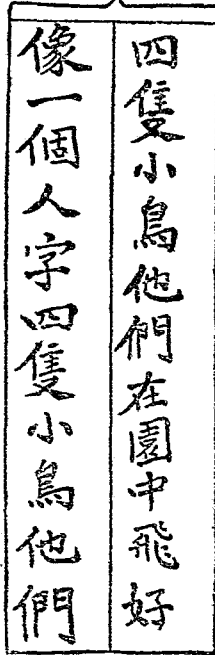 四隻小鳥他們在園中飛好
像一個人字四隻小鳥他們